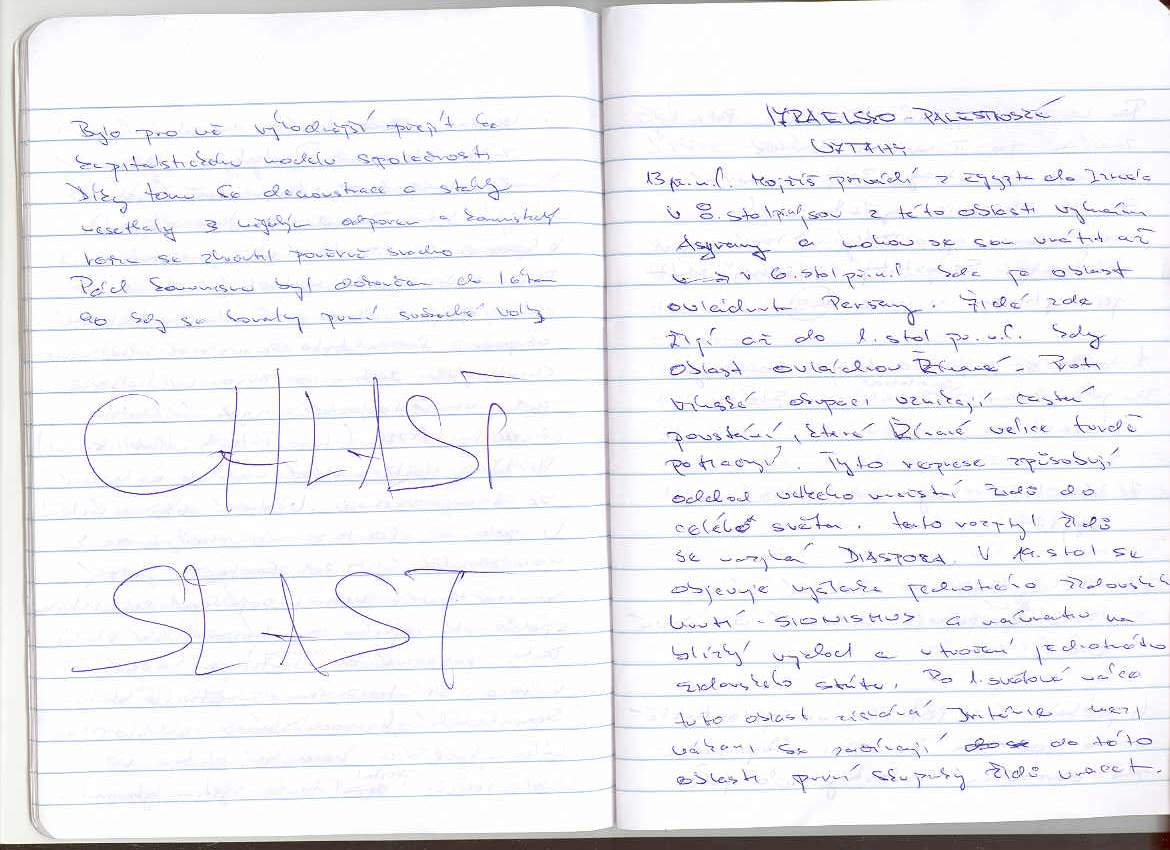 Bylo pro ně výhodnější přejít ke
kapitalistickému modelu společnosti
Díky tomu se demonstrace a stávky
nesetkaly s nějakým odporem a komunistický
režim se zhroutil poměrně snadno.
Pád komunismu byl dokončen do léta
90 kdy se konaly první svobodné volby
CHLAST
SLAST
IZRAELSKO - PALESTINSKÉ
VZTAHY
13 př.n.l. Mojžíš přivádí z Egypta do Izraele
v 8. stol př.n.l. jsou z této oblasti vyhnáni
Asyřany a mohou se sem vrátit až
v 6. stol př.n.l kde je oblast
ovládnuta Peršany. Židé zde
žijí až do 1. stol př.n.l. kdy
oblast ovládnou Římané. Proti
římské okupaci vznikají častá
povstání, které Římané velice tvrdě
potlačují. Tyto represe způsobují
odchod velkého množství židů do
celého světa. tento rozptyl židů
se nazývá DIASPORA. V 19. stol se
objevuje vyšlenka jednotného židovského
hnutí - SIONISMUS a návratu na
blízký východ a utvoření jednotného
židovského státu. Po 1. světové válce
tuto oblast získává Británie mezi
válkami se začínají do této
oblasti první skupiny židů vracet.